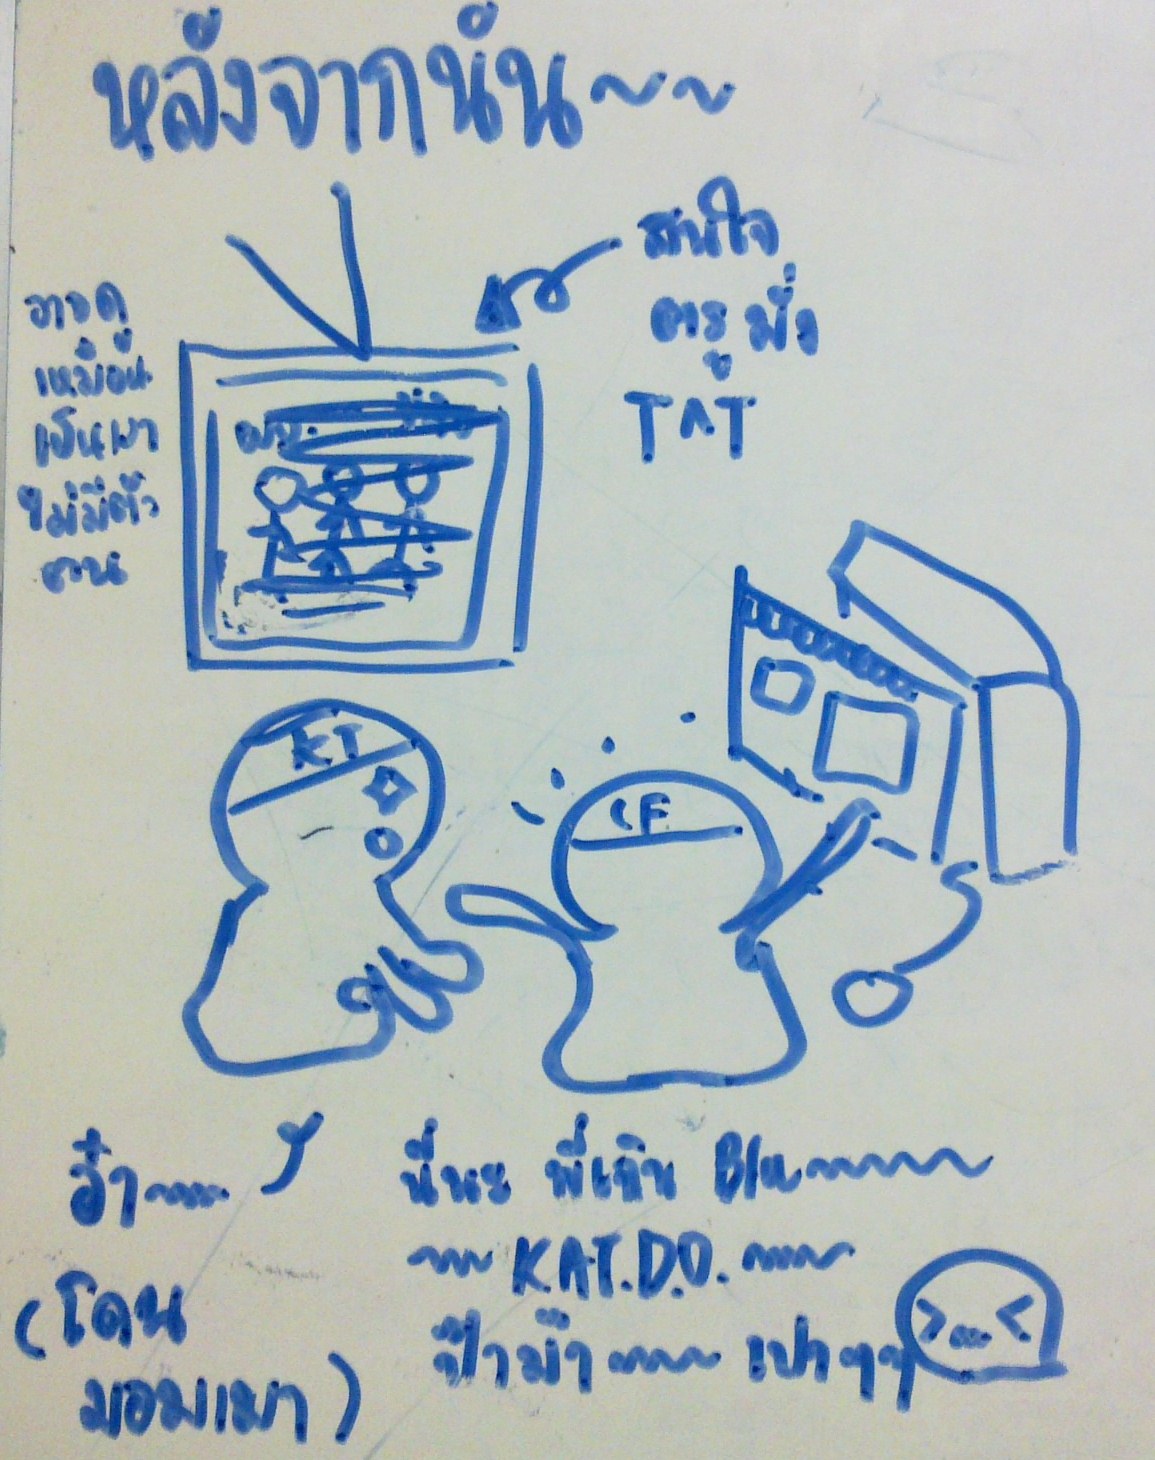 หลังจากนั้น~~
สนใจ
ตรูมั่ง
T^T
อาจดู
เหมือน
เป็นเงา
ไม่มีตัว
ตน
KT
CF
อ๋า~~~
นี่นะ พี่เฉิน Blu~~~~
~~ K.A.T.D.O. ~~~
ป๊าม๊า~~~ เปาๆๆ
(โดน
มอมเมา)
>...<